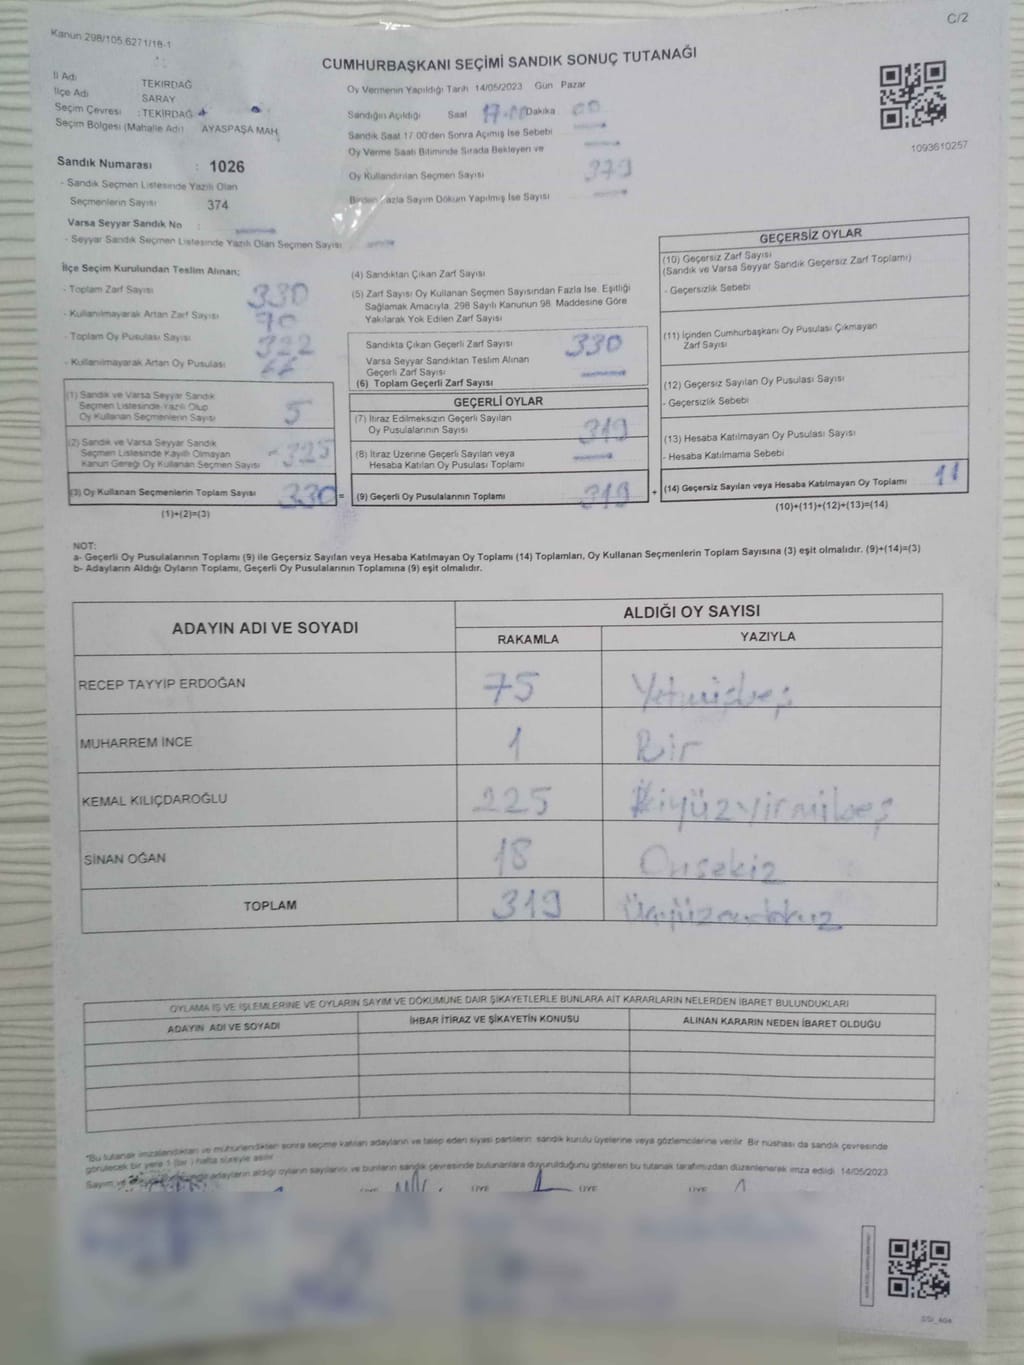 C/2
Kanun 298/105.6271/18-1
CUMHURBAŞKANI SEÇİMİ SANDIK SONUÇ TUTANAĞI
İl Adı TEKİRDAĞ
İlçe Adı SARAY
Seçim Çevresi : TEKİRDAĞ
Seçim Bölgesi (Mahalle Adı) AYASPAŞA MAH.
Oy Vermenin Yapıldığı Tarih 14/05/2023 Gün Pazar
Sandığın Açıldığı Saat 17.00 Dakika 00
Sandık Saat 17.00'den Sonra Açılmış İse Sebebi
Oy Verme Saati Bitiminde Sırada Bekleyen ve
Oy Kullandırılan Seçmen Sayısı
Birden Fazla Sayım Döküm Yapılmış İse Sayısı
1093610257
Sandık Numarası : 1026
- Sandık Seçmen Listesinde Yazılı Olan
Seçmenlerin Sayısı 374
Varsa Seyyar Sandık No :
- Seyyar Sandık Seçmen Listesinde Yazılı Olan Seçmen Sayısı
İlçe Seçim Kurulundan Teslim Alınan;
- Toplam Zarf Sayısı
- Kullanılmayarak Artan Zarf Sayısı 70
- Toplam Oy Pusulası Sayısı
- Kullanılmayarak Artan Oy Pusulası
(1) Sandık ve Varsa Seyyar Sandık
Seçmen Listesinde Yazılı Olup
Oy Kullanan Seçmenlerin Sayısı 5
(2) Sandık ve Varsa Seyyar Sandık
Seçmen Listesinde Kayıtlı Olmayan
Kanun Gereği Oy Kullanan Seçmen Sayısı 325
(3) Oy Kullanan Seçmenlerin Toplam Sayısı 330 =
(1)+(2)=(3)
(4) Sandıktan Çıkan Zarf Sayısı
(5) Zarf Sayısı Oy Kullanan Seçmen Sayısından Fazla İse, Eşitliği
Sağlamak Amacıyla, 298 Sayılı Kanunun 98. Maddesine Göre
Yakılarak Yok Edilen Zarf Sayısı
Sandıkta Çıkan Geçerli Zarf Sayısı 330
Varsa Seyyar Sandıktan Teslim Alınan
Geçerli Zarf Sayısı
(6) Toplam Geçerli Zarf Sayısı
GEÇERLİ OYLAR
(7) İtiraz Edilmeksizin Geçerli Sayılan
Oy Pusulalarının Sayısı 319
(8) İtiraz Üzerine Geçerli Sayılan veya
Hesaba Katılan Oy Pusulası Toplamı
(9) Geçerli Oy Pusulalarının Toplamı 319 +
GEÇERSİZ OYLAR
(10) Geçersiz Zarf Sayısı
(Sandık ve Varsa Seyyar Sandık Geçersiz Zarf Toplamı)
- Geçersizlik Sebebi
(11) İçinden Cumhurbaşkanı Oy Pusulası Çıkmayan
Zarf Sayısı
(12) Geçersiz Sayılan Oy Pusulası Sayısı
- Geçersizlik Sebebi
(13) Hesaba Katılmayan Oy Pusulası Sayısı
- Hesaba Katılmama Sebebi
(14) Geçersiz Sayılan veya Hesaba Katılmayan Oy Toplamı 11
(10)+(11)+(12)+(13)=(14)
NOT:
a- Geçerli Oy Pusulalarının Toplamı (9) ile Geçersiz Sayılan veya Hesaba Katılmayan Oy Toplamı (14) Toplamları, Oy Kullanan Seçmenlerin Toplam Sayısına (3) eşit olmalıdır. (9)+(14)=(3)
b- Adayların Aldığı Oyların Toplamı, Geçerli Oy Pusulalarının Toplamına (9) eşit olmalıdır.
ADAYIN ADI VE SOYADI
ALDIĞI OY SAYISI
RAKAMLA YAZIYLA
RECEP TAYYİP ERDOĞAN 75 Yetmişbeş
MUHARREM İNCE 1 Bir
KEMAL KILIÇDAROĞLU 225 İkiyüzyirmibeş
SİNAN OĞAN 18 Onsekiz
TOPLAM 319 Üçyüzondokuz
OYLAMA İŞ VE İŞLEMLERİNE VE OYLARIN SAYIM VE DÖKÜMÜNE DAİR ŞİKAYETLERLE BUNLARA AİT KARARLARIN NELERDEN İBARET BULUNDUKLARI
ADAYIN ADI VE SOYADI İHBAR İTİRAZ VE ŞİKAYETİN KONUSU ALINAN KARARIN NEDEN İBARET OLDUĞU
*Bu tutanak imzalandıktan ve mühürlendikten sonra seçime katılan adayların ve talep eden siyasi partilerin sandık kurulu üyelerine veya gözlemcilerine verilir. Bir nüshası da sandık çevresinde
görülecek bir yere 1 (bir) hafta süreyle asılır.
adayların aldığı oyların sayılarını ve bunların sandık çevresinde bulunanlara duyurulduğunu gösteren bu tutanak tarafımızdan düzenlenerek imza edildi. 14/05/2023
ÜYE ÜYE ÜYE ÜYE